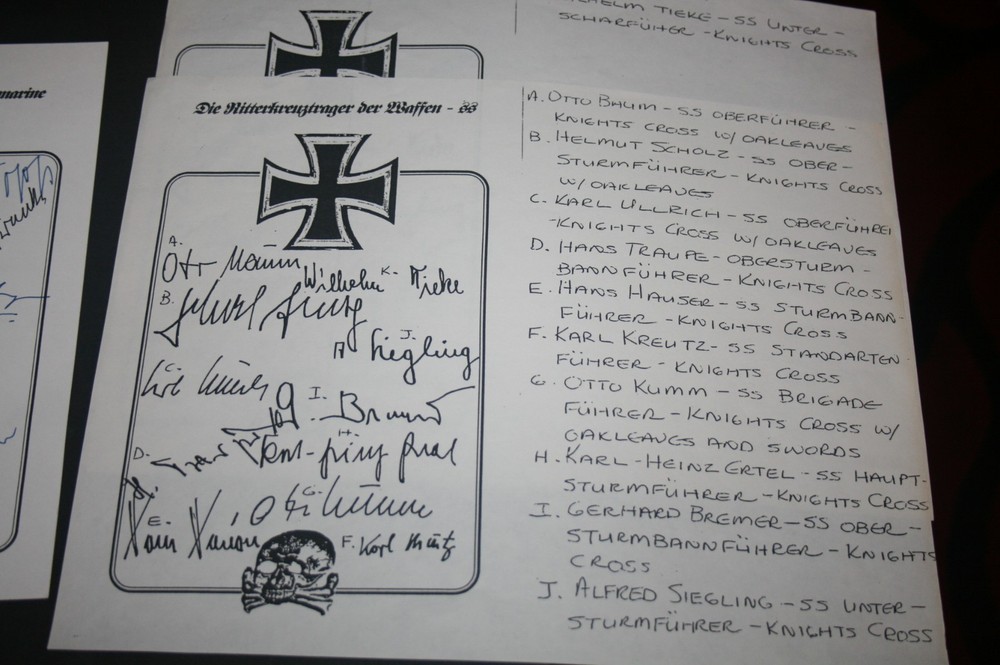 WILHELM TIEKE - SS UNTER -
SCHARFÜHER - KNIGHTS CROSS
marine
Die Ritterkreuztrager der Waffen - SS
A.
Otto Baum
Wilhelm K- Tieke
B.
J.
A Siegling
C.
I. Bremer
H.
D.
G.
Otto Kumm
E.
Hans Hauser
F. Karl Kreutz
A. OTTO BAUM - SS OBERFÜHRER -
KNIGHTS CROSS W/ OAKLEAVES
B. HELMUT SCHOLZ - SS OBER-
STURMFÜHRER - KNIGHTS CROSS
W/ OAKLEAVES
C. KARL ULLRICH - SS OBERFÜHREI
-KNIGHTS CROSS W/ OAKLEAVES
D. HANS TRAUPE - OBERSTURM-
BANNFÜHRER - KNIGHTS CROSS
E. HANS HAUSER - SS STURMBANN-
FÜHRER - KNIGHTS CROSS
F. KARL KREUTZ - SS STANDARTEN
FÜHRER - KNIGHTS CROSS
G. OTTO KUMM - SS BRIGADE
FÜHRER - KNIGHTS CROSS W/
OAKLEAVES AND SWORDS
H. KARL-HEINZ ERTEL - SS HAUPT-
STURMFÜHRER - KNIGHTS CROSS
I. GERHARD BREMER - SS OBER-
STURMBANNFÜHRER - KNIGHTS
CROSS
J. ALFRED SIEGLING - SS UNTER-
STURMFÜHRER - KNIGHTS CROSS